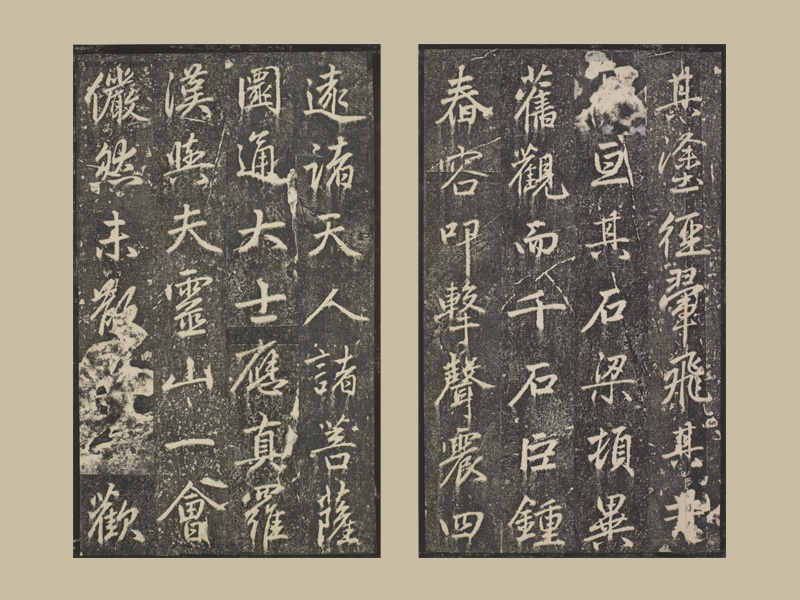 其塗徑翬飛其
亘其石梁頓異
舊觀而千石巨鍾
舂容叩擊聲震四
遠諸天人諸菩薩
圓通大士應真羅
漢與夫靈山一會
儼然未散歡